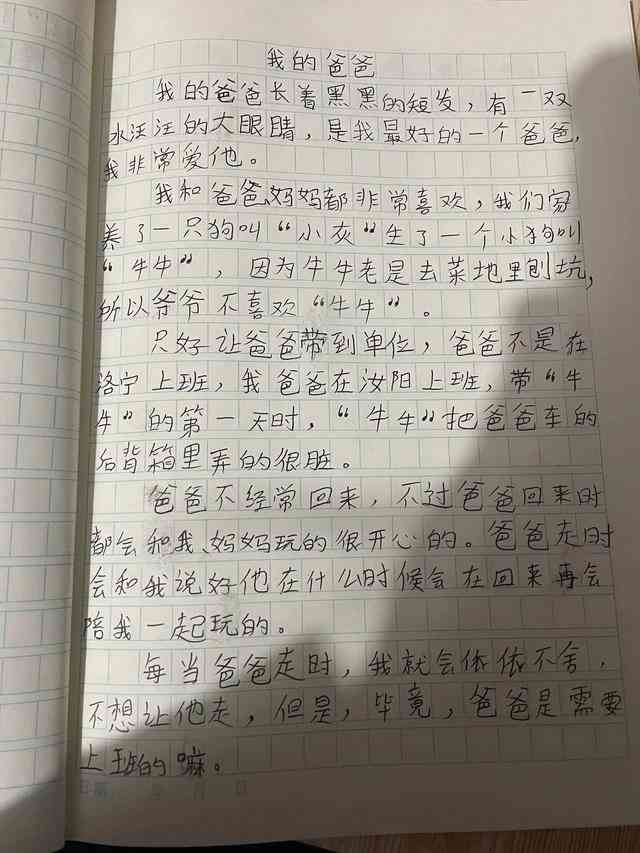 我的爸爸
我的爸爸长着黑黑的短发，有一双
水汪汪的大眼睛，是我最好的一个爸爸，
我非常爱他。
我和爸爸、妈妈都非常喜欢，我们家
养了一只狗叫“小灰”生了一个小狗叫
“牛牛”，因为牛牛老是去菜地里刨坑，
所以爷爷不喜欢“牛牛”。
只好让爸爸带到单位，爸爸不是在
洛宁上班，我爸爸在汝阳上班，带“牛
牛”的第一天时，“牛牛”把爸爸车的
后背箱里弄的很脏。
爸爸不经常回来，不过爸爸回来时
都会和我、妈妈玩的很开心的。爸爸走时
会和我说好他在什么时候会在回来再会
陪我一起玩的。
每当爸爸走时，我就会依依不舍，
不想让他走，但是，毕竟，爸爸是需要
上班的嘛。
日期 年 月 日